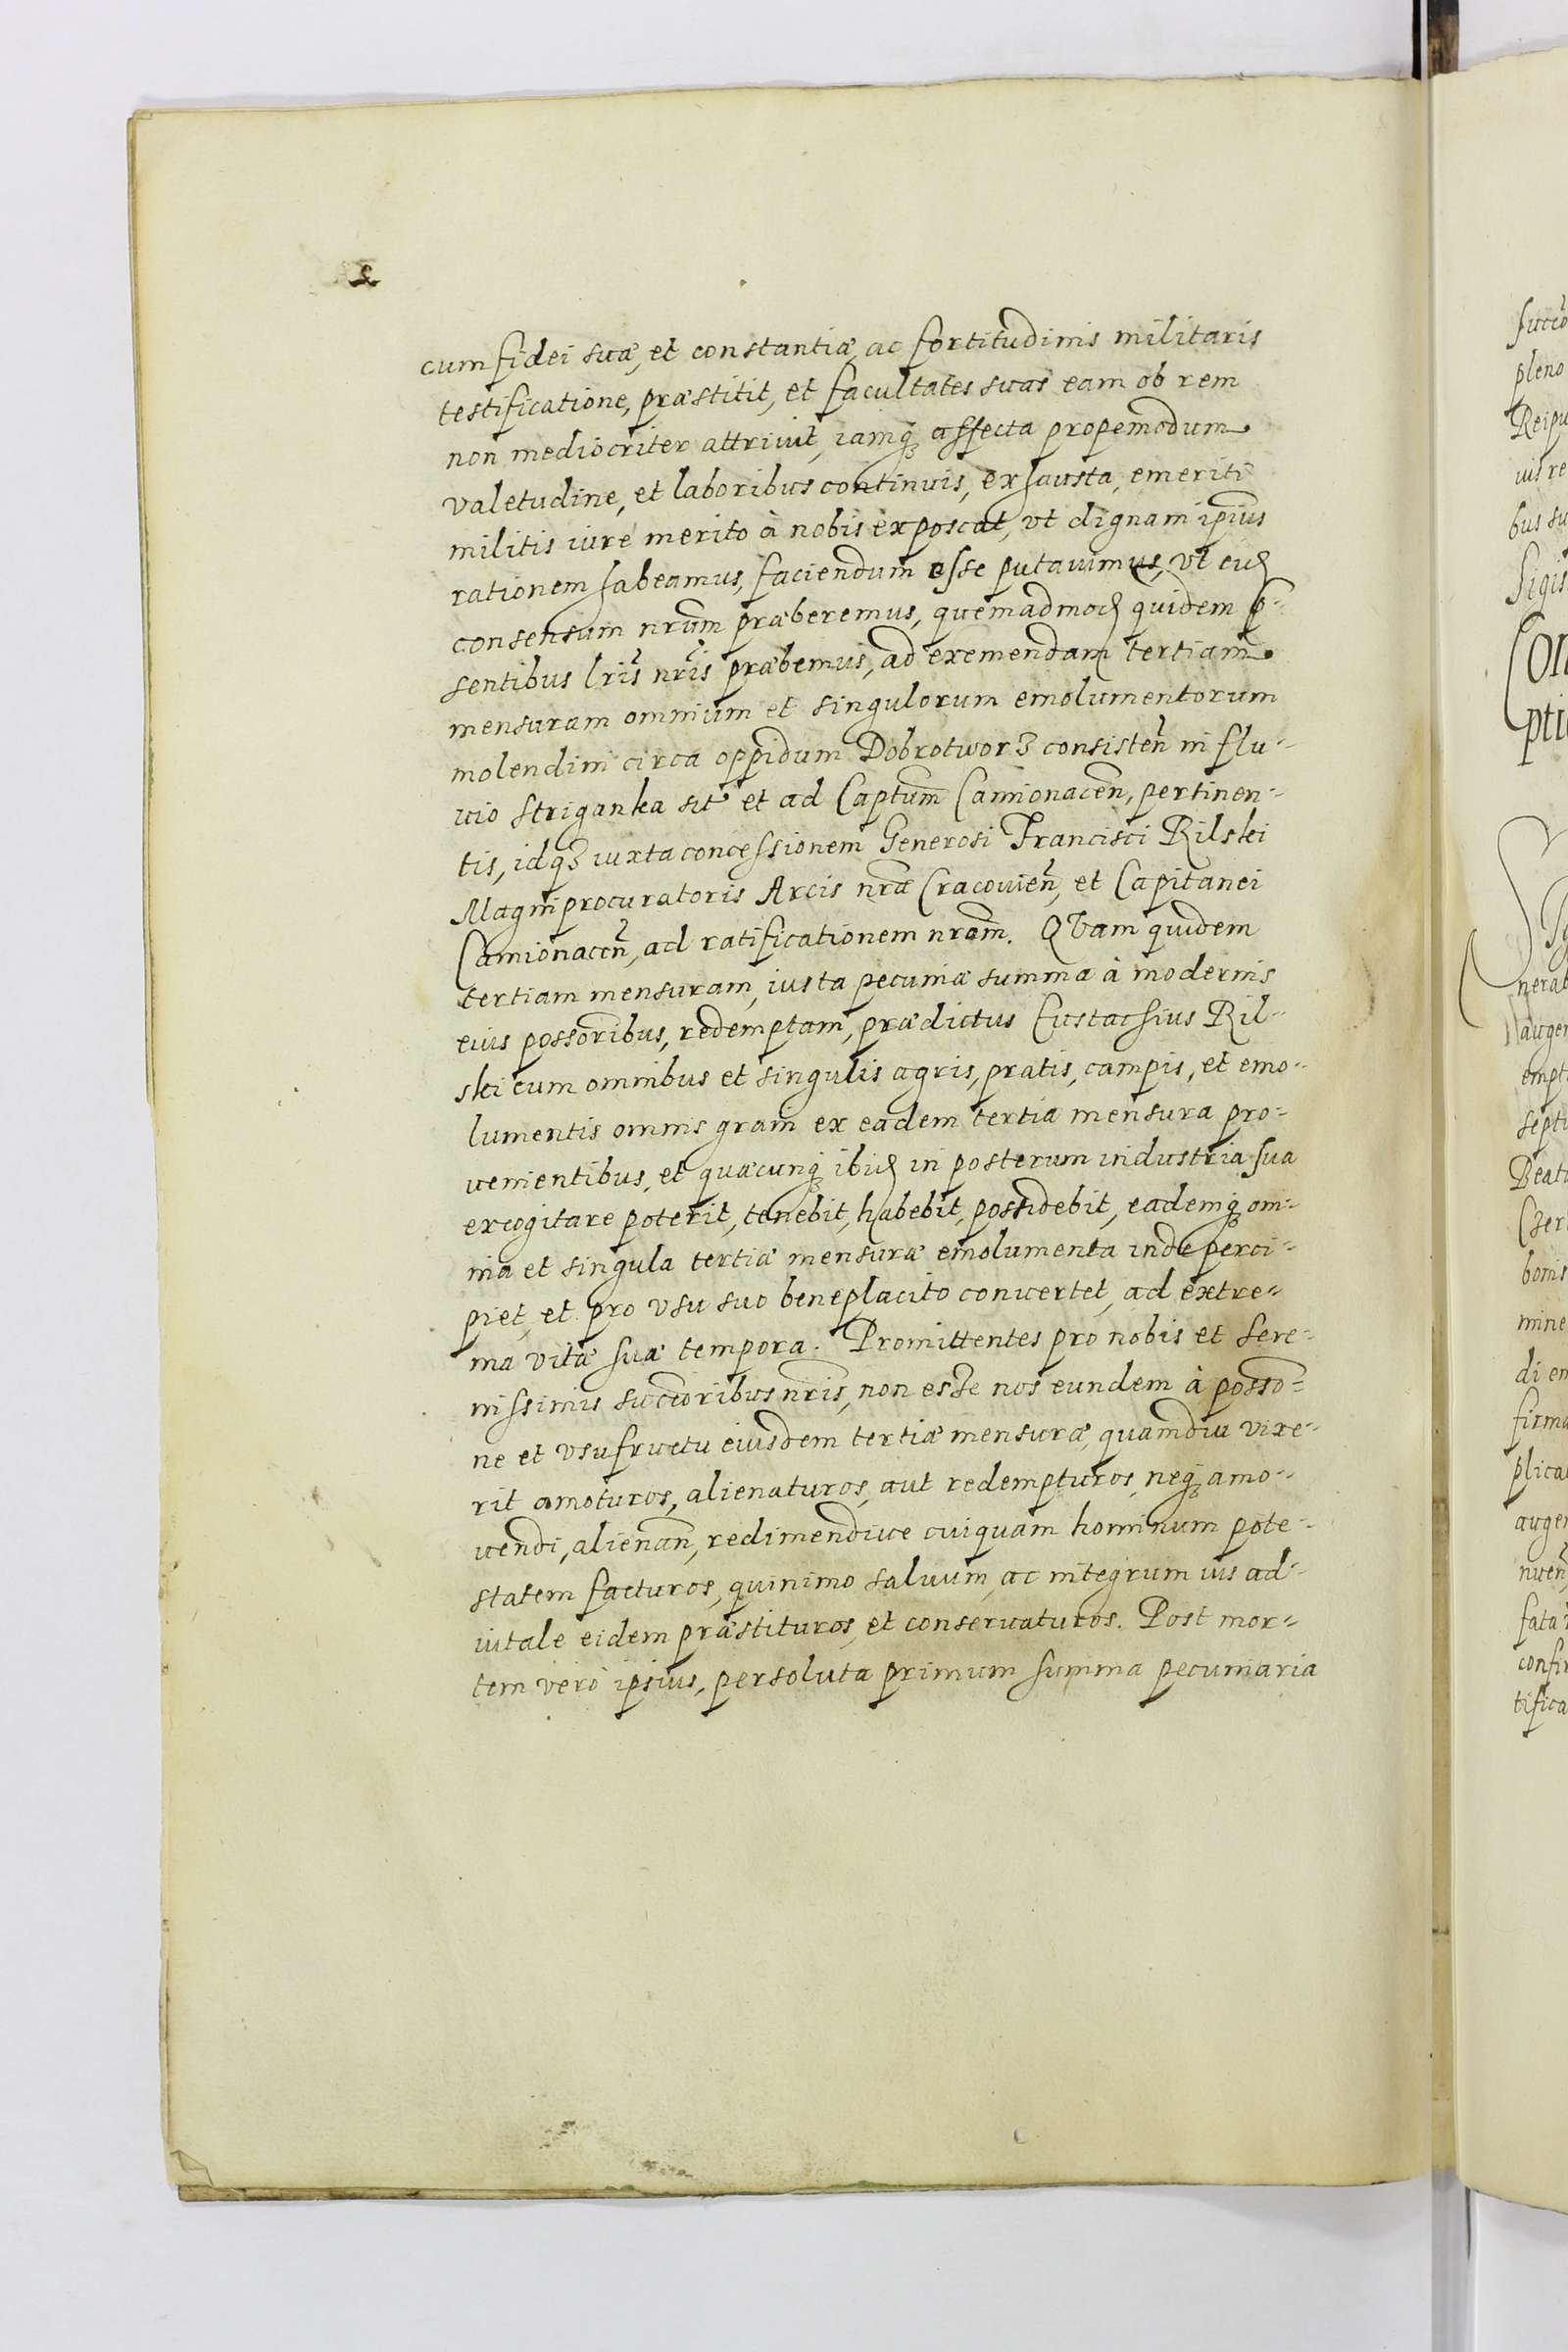 cum fidei suæ, et constantiæ, ac fortitudinis militaris
testificatione, præstitit, et facultates suas eam ob rem
non mediocriter attriuit, iamq3 affecta propemodum
valetudine, et laboribus continuis, exhausta, emeriti
militis iure merito à nobis exposcat, vt dignam ip̄ius
rationem habeamus, faciendum esse putauimus, vt eid
consensum nr̄um præberemus, quemadmod quidem p̄-
sentibus lrīs nrīs præbemus, ad exemendam tertiam
mensuram omnium et singulorum emolumentorum
molendini circa oppidum Dobrotworz consisteñ in flu-
uio Striganka sit et ad Captūm Camionaceñ, pertinen-
tis, idq3 iuxta concessionem Generosi Francisci Rilski
Magniprocuratoris Arcis nr̄æ Cracouieñ, et Capitanei
Camionaceñ, ad ratificationem nr̄am. QVam quidem
tertiam mensuram, iusta pecuniæ summa à modernis
eius posso͞ribus, redemptam, prædictus Eustachius Ril-
ski cum omnibus et singulis agris, pratis, campis, et emo-
lumentis omnis gram̄ ex eadem tertia mensura pro-
uenientibus, et quæcunq3 ibid in posterum industria sua
excogitare poterit, tenebit, habebit, possidebit, eademq3 om-
nia et singula tertiæ mensuræ emolumenta inde perci-
piet, et pro vsu suo beneplacito conuertet, ad extre-
ma vitæ suæ tempora. Promittentes pro nobis et Sere-
nissimis succo͞ribus nr̄is, non esse nos eundem à posso͞-
ne et vsufructu eiusdem tertiæ mensuræ, quamdiu vixe-
rit amoturos, alienaturos, aut redempturos, neq3 amo-
uendi, alienañ, redimendiue cuiquam hominum pote-
statem facturos, quinimo saluum, ac integrum ius ad-
uitale eidem præstituros, et conseruaturos. Post mor-
tem verò ipsius, persoluta primum summa pecuniaria